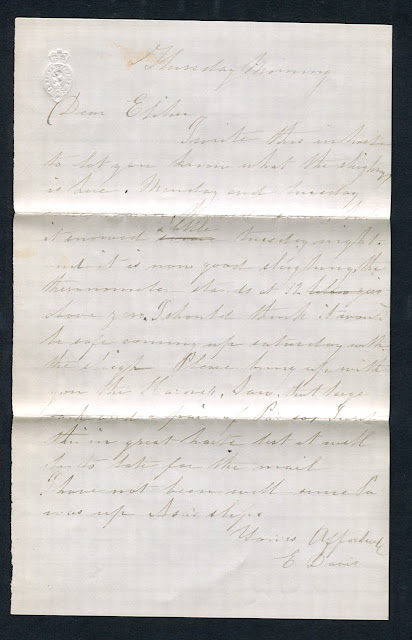 Thursday Morning
Dear
I write this in haste
to let you know what the sleighing
is here. Monday and tuesday
it snowed a little tuesday night.
and it is now good sleighing. the
thermometer stands at 12 below zero
above zero. I should think it would
be safe coming up saturday with
the sleigh Please bring up with
you the Saw, that large
and a pair of I write
this in great haste lest it will
be to late for the mail
I have not been well since Pa
was up
Yours Affectionately
E Davis